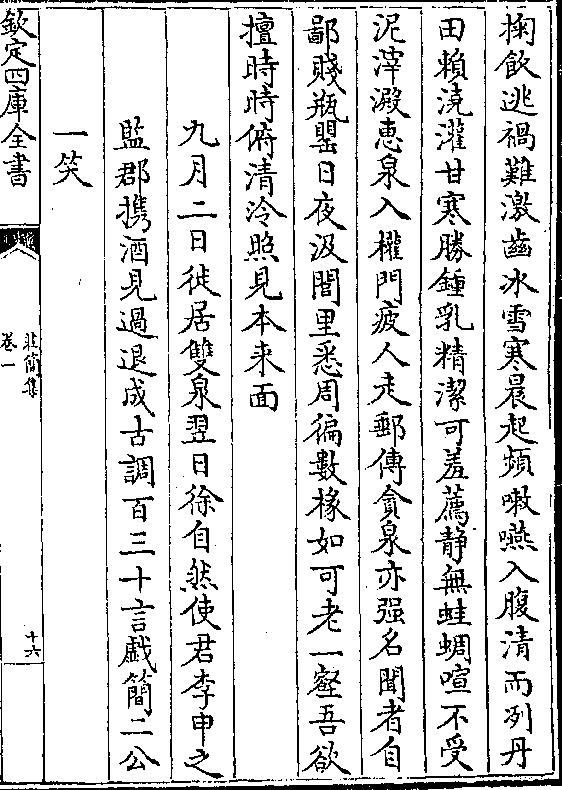 掬飲逃禍難激齒冰雪寒晨起頻嗽嚥入腹清而冽丹
田賴澆灌甘寒勝鍾乳精潔可羞薦静無蛙蜩喧不受
泥滓澱恵泉入權門疲人走郵傳貪泉亦强名聞者自
鄙賤瓶罌日夜汲閭里悉周徧數椽如可老一壑吾欲
擅時時俯清泠照見本来面
九月二日徙居雙泉翌日徐自然使君李申之
監郡携酒見過退成古調百三十言戲簡二公
一笑
欽定四庫全書
莊簡集
卷一
十六